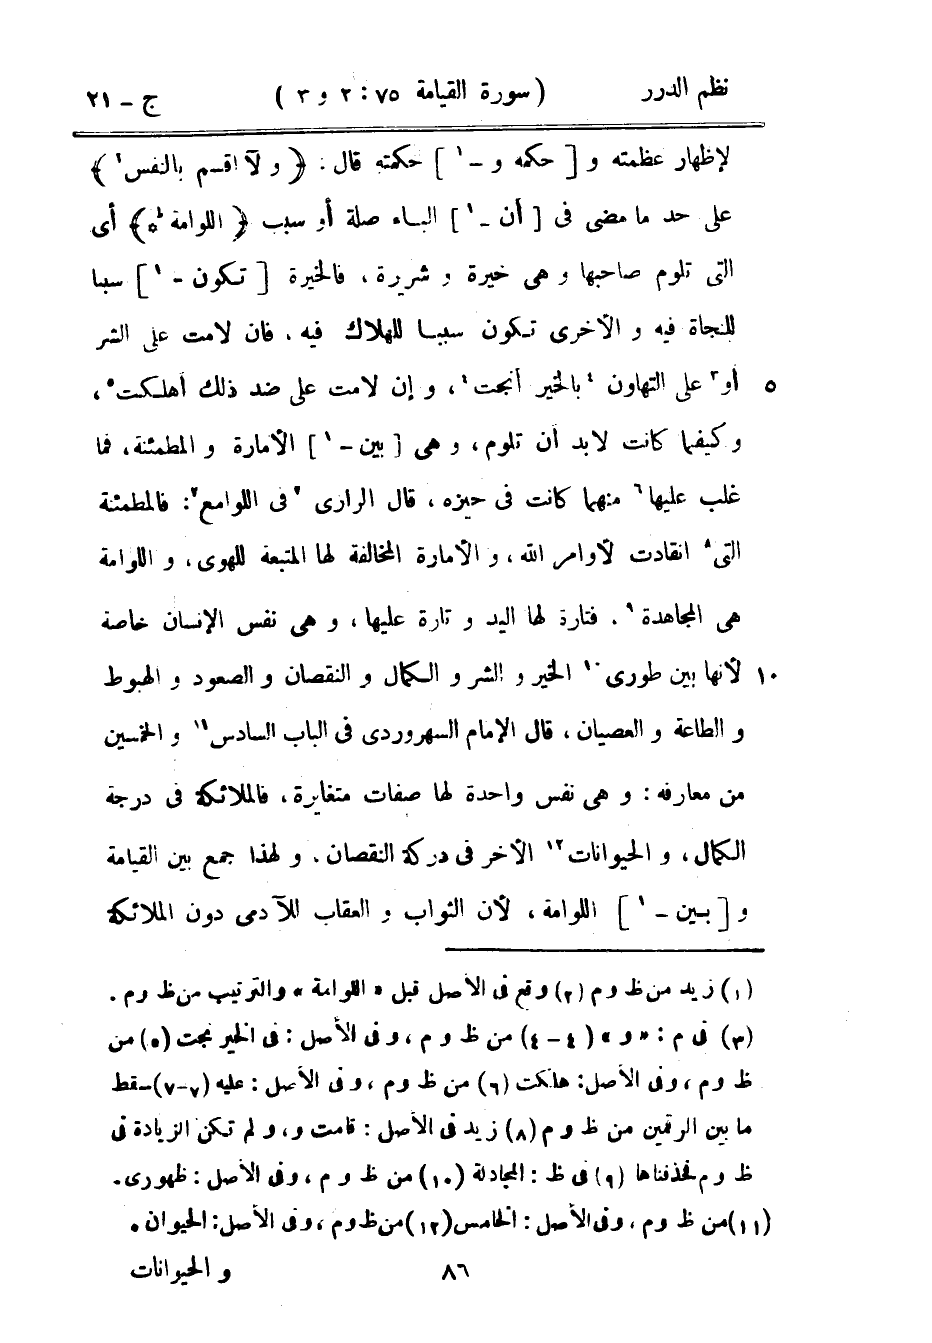 نظم الدرر ( سورة القيامة ٧٥ : ٢ و ٣ ) ج - ٢١
لإظهار عظمته و [ حكمه و - ١ ] حكمته قال : ﴿ و لآ اقسم بالنفس ١ ﴾
على حد ما مضى فى [ أن - ١ ] الباء صلة أو سبب ﴿ اللوامة ٢ ﴾ أى
التى تلوم صاحبها و هى خيرة و شريرة ، فالخيرة [ تكون - ١ ] سببا
للنجاة فيه و الأخرى تكون سببا للهلاك فيه . فان لامت على الشر
٥ أو ٣ على التهاون ٤ بالخير أنجت ٤ ، و إن لامت على ضد ذلك أهلكت ٥ ،
و كيفما كانت لابد أن تلوم ، و هى [ بين - ١ ] الأمارة و المطمئنة ، فما
غلب عليها ٦ منهما كانت فى حيزه ، قال الرازى ٧ فى اللوامع ٧ : فالمطمئنة
التى ٨ انقادت لأوامر الله ، و الأمارة المخالفة لها المتبعة للهوى ، و اللوامة
هى المجاهدة ٩ . فتارة لها اليد و تارة عليها ، و هى نفس الإنسان خاصة
١٠ لأنها بين طورى ١٠ الخير و الشر و الكمال و النقصان و الصعود و الهبوط
و الطاعة و العصيان ، قال الإمام السهروردى فى الباب السادس ١١ و الخمسين
من معارفه : و هى نفس واحدة لها صفات متغايرة ، فالملائكة فى درجة
الكمال ، و الحيوانات ١٢ الأخر فى دركة النقصان . و لهذا جمع بين القيامة
و [ بين - ١ ] اللوامة ، لأن الثواب و العقاب للآدمى دون الملائكة
(١) زيد من ظ و م (٢) وقع فى الأصل قبل « اللوامة » والترتيب من ظ و م .
(٣) فى م : « و » ( ٤ - ٤ ) من ظ و م ، و فى الأصل : فى الخير نجت (٥) من
ظ و م ، وفى الأصل : هلكت (٦) من ظ و م ، و فى الأصل : عليه (٧-٧) سقط
ما بين الرقمين من ظ و م (٨) زيد فى الأصل : قامت و ، و لم تكن الزيادة فى
ظ و م فحذفناها (٩) فى ظ : المجادلة (١٠) من ظ و م ، وفى الأصل : ظهورى .
(١١) من ظ و م ، وفى الأصل : الخامس (١٢) من ظ و م ، وفى الأصل : الحيوان .
٨٦ و الحيوانات